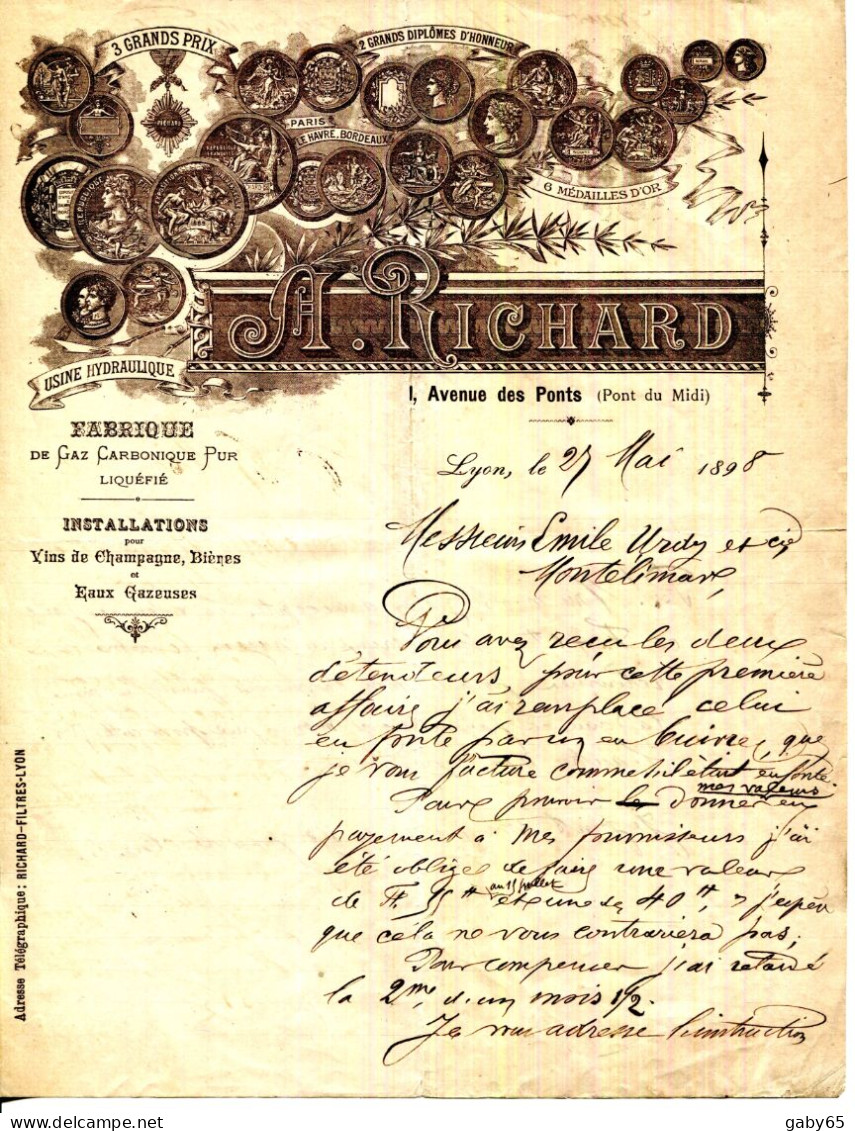 3 GRANDS PRIX
2 GRANDS DIPLÔMES D'HONNEUR
PARIS
LE HAVRE, BORDEAUX
6 MÉDAILLES D'OR
A. RICHARD
USINE HYDRAULIQUE
1, Avenue des Ponts (Pont du Midi)
FABRIQUE
DE GAZ CARBONIQUE PUR
LIQUÉFIÉ
INSTALLATIONS
pour
Vins de Champagne, Bières
et
Eaux Gazeuses
Adresse Télégraphique: RICHARD-FILTRES-LYON
Lyon, le 27 Mai 1898
Messieurs Emile Urdy et Cie
Montelimar,
Vous avez recu les deux
détendeurs, pour cette première
affaire j'ai remplacé celui
en fonte par un en Cuivre, que
je vous facture comme s'il était en fonte.
mes valeurs
Pour pouvoir le donner en
payement à mes fournisseurs j'ai
été obligé de faire une valeur
au 15 juillet
de et une de 40", j'espère
que cela ne vous contrariera pas;
Pour compenser j'ai retardé
la 2me, d'un mois 1/2.
Je vous adresse l'instruction
delcampe.net
gaby65